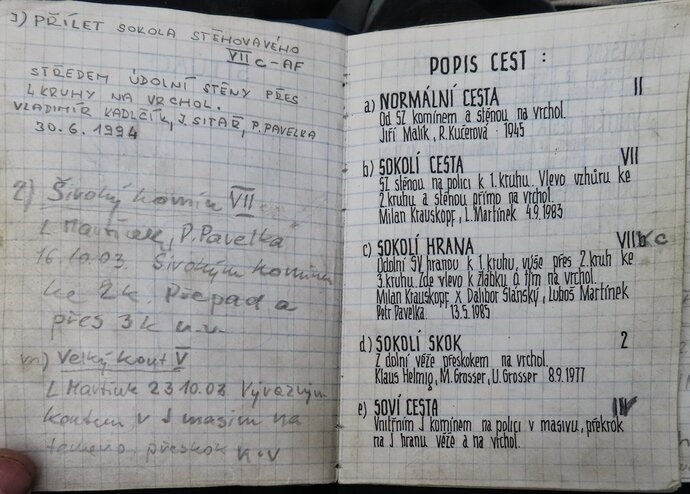 J) PŘÍLET SOKOLA STĚHOVAVÉHO
VIIc-AF
STŘEDEM ÚDOLNÍ STĚNY PŘES
4 KRUHY NA VRCHOL.
VLADIMÍR KADLČÍK, J. SITAŘ, P. PAVELKA
30. 6. 1994
Široký komín VII
L Martinek, P. Pavelka
16.10.03. Širokým komínem
ke 2k. Přepad a
přes 3k n.v.
Velký kout V
L Martinek 23.10.03.
koutem v J masivu na
přeskok n.v
POPIS CEST :
a) NORMÁLNÍ CESTA II
Od SZ komínem a stěnou na vrchol.
Jiří Malík, R. Kučerová 1945
b) SOKOLÍ CESTA VII
SZ stěnou na polici k 1. kruhu. Vlevo vzhůru ke
2. kruhu a stěnou přímo na vrchol.
Milan Krauskopf, L. Martinek 4.9.1983
c) SOKOLÍ HRANA VII c
Údolní SV hranou k 1. kruhu, výše přes 2. kruh ke
3. kruhu. Zde vlevo k žlábku a tím na vrchol.
Milan Krauskopf X Dalibor Slánský, Luboš Martinek
Petr Pavelka 13.5.1985
d) SOKOLÍ SKOK 2
Z dolní věže přeskokem na vrchol.
Klaus Helmig, M. Grosser, U. Grosser 8.9.1977
e) SOVÍ CESTA IV
Vnitřním J komínem na polici v masivu, překrok
na J hranu věže a na vrchol.